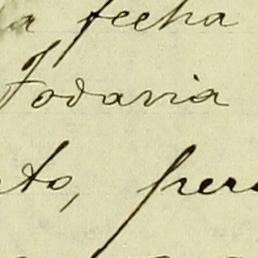 la fecha
Todavia
eto, pero